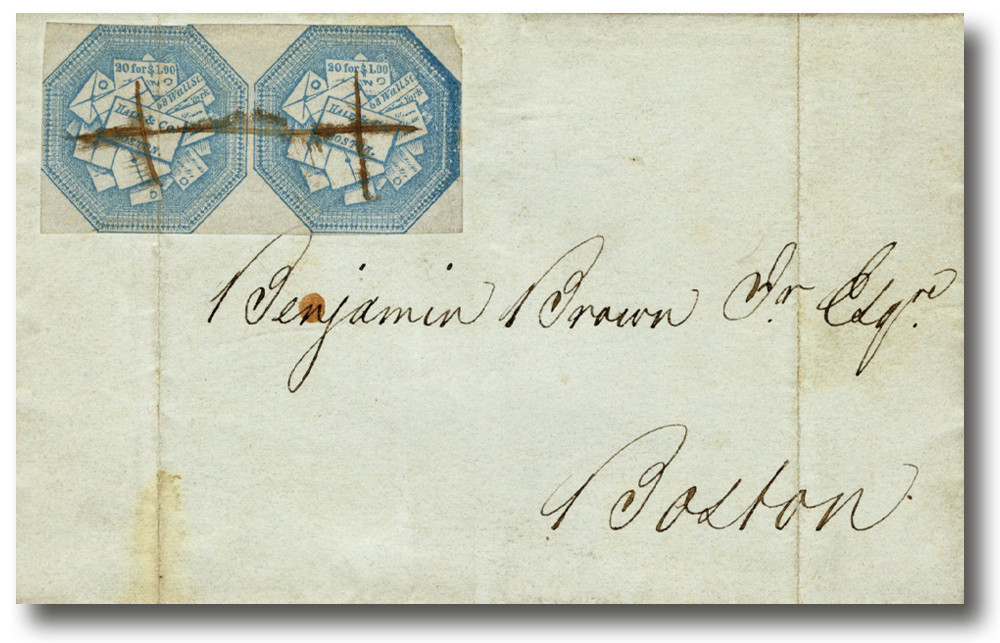 20 for $1.00
58 Wall St.
HALE & Co.
BOSTON.
20 for $1.00
58 Wall St.
York
HALE
BOSTON.
Benjamin Brown Jr Esqre
Boston